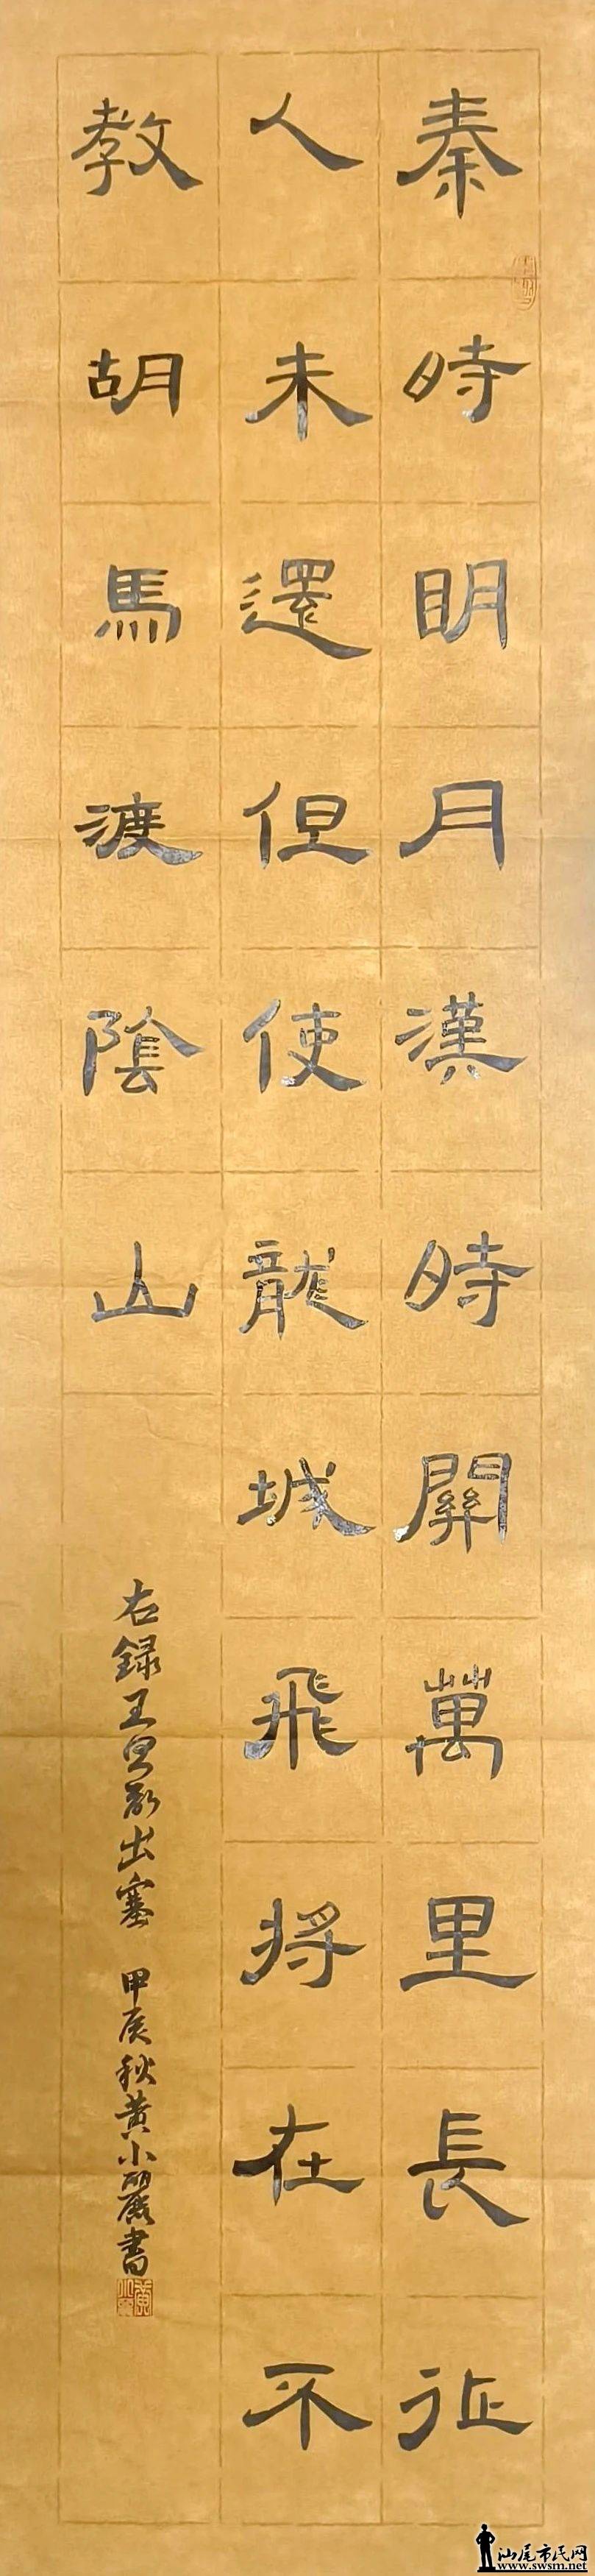 秦時明月漢時關萬里長征
人未還但使龍城飛將在不
教胡馬渡陰山
右錄王昌齡出塞 甲辰秋黃小麗書
汕尾市民网
www.swsm.net